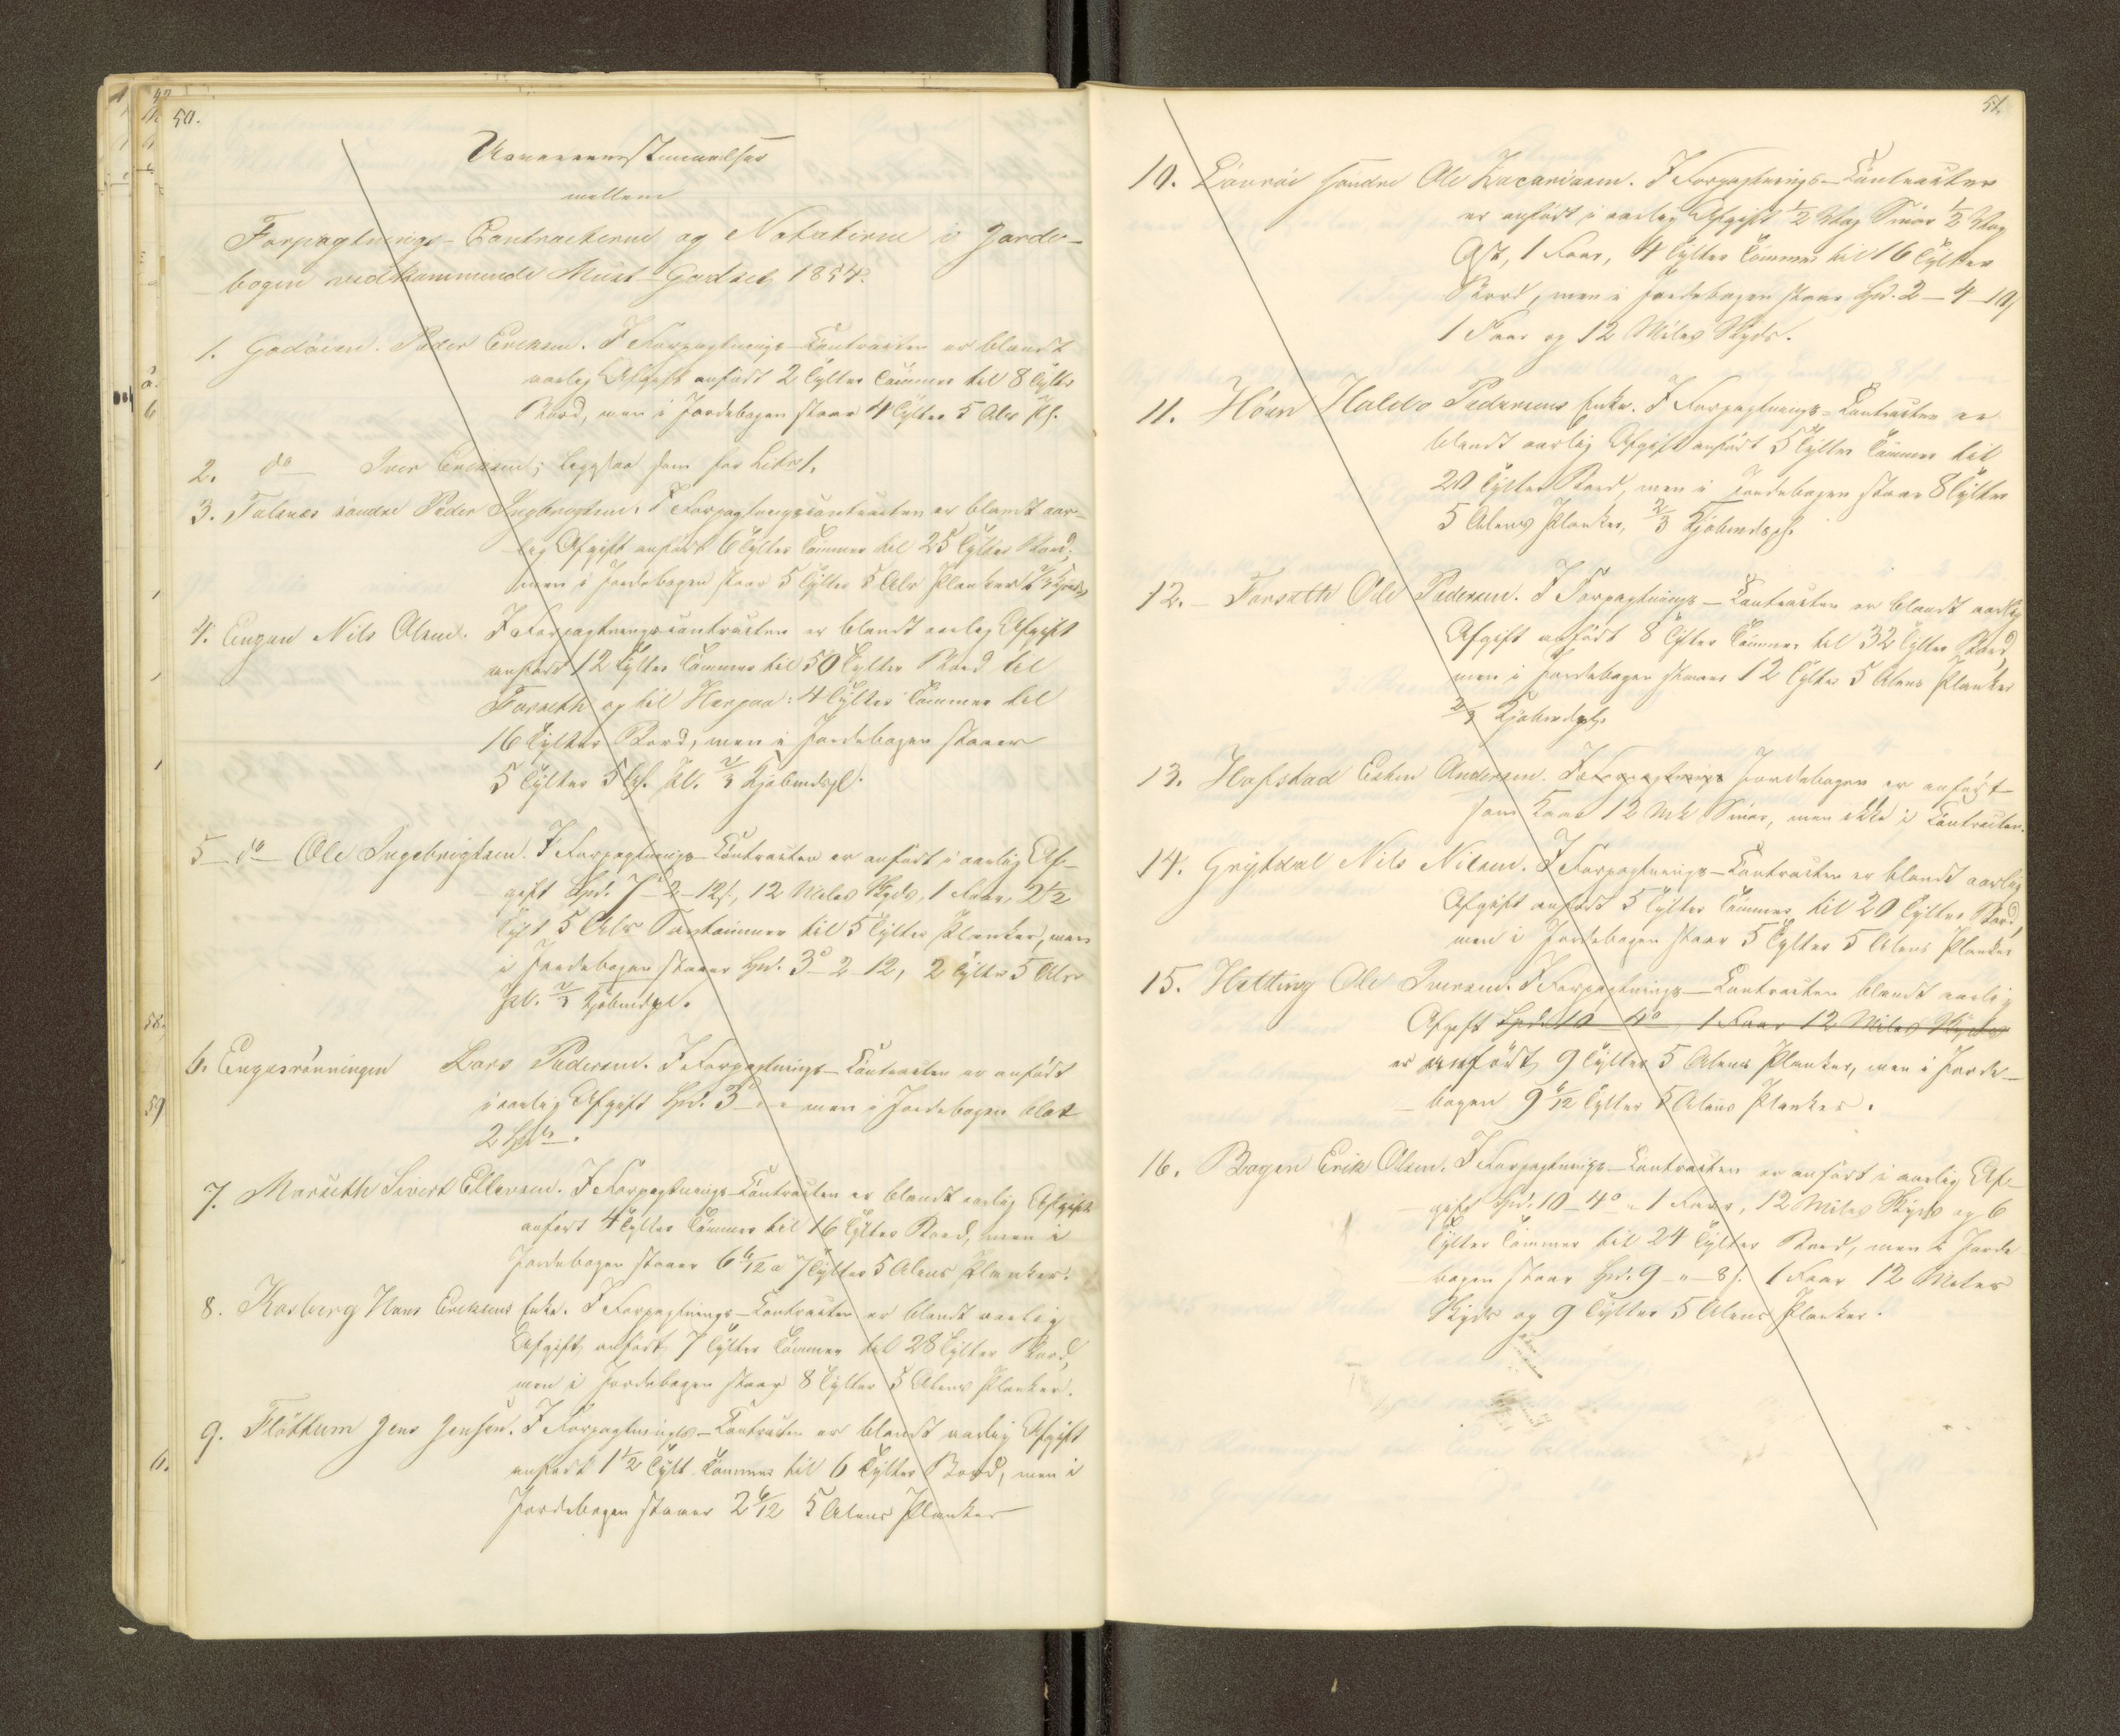 50.
Uoverensstemmelser
mellem
Forpagtnings-Contracterne og Notaterne i Jorde-
bogen vedkommende Huus-Godset 1854.
1. Godöien. Peder Ericksen. I Forpagtnings-Contracten er blandt
aarlig Afgift anført 2 Tylter Tømmer til 8 Tylter
Bord, men i Jordebogen staar 4 Tylter 5 Alns Pl.
2. do Iver Ericksen; ligesaa som for Litr 1.
3. söndre Peder Ingbrigtsen. I Forpagtningscontracten er blandt aar-
lig Afgift anført 6 Tylter Tømmer til 25 Tylter Bord;
men i Jordebogen staar 5 Tylter 5 Aln Planker 2/3
4. Engan Nils Olsen. I Forpagtningscontracten er blandt aarlig Afgift
anført 12 Tylter Tømmer til 50 Tylter Bord til
Forseth og til Harpaa: 4 Tylter Tømmer til
16 Tylter Bord, men i Jordebogen staaer
5 Tylter 5 Al. Pl. 2/3 Kjøbmdspl.
5 do Ole Ingebrigtsen. I Forpagtnings-Contracten er anført i aarlig Af-
gift Spd. 7-2-12ß, 12 Miles Skyds, 1 Faar, 2 1/2
Tylt 5 Aln Tømmer til 5 Tylter Planker, men
i Jordebogen staaer Spd. 3-2-12, 2 Tylter 5 Alns
Pl. 2/3 Kjøbmdspl.
6. Engesrönningen Lars Pedersen. I Forpagtnings-Contracten er anført
i aarlig Afgift Spd. 3 - - men i Jordebogen blot
2 Spd.
7. Marseth Sivert Ellevsen. I Forpagtnings-Contracten er blandt aarlig Afgift
anført 4 Tylter Tømmer til 16 Tylter Bord, men i
Jordebogen staaer 6 6/12 a 7 Tylter 5 Alens Planker.
8. Kosberg Hans Ericksens Enke. I Forpagtnings-Contracten er blandt aarlig
Afgift anført 7 Tylter Tømmer til 28 Tylter Bord,
men i Jordebogen staar 8 Tylter 5 Alens Planker.
9. Flöttum Jens Jensen. I Forpagtnings-Contracten er blandt aarlig Afgift
anført 1 1/2 Tylt Tømmer til 6 Tylter Bord, men i
Jordebogen staaer 2 6/12 5 Alens Planker
51.
10. söndre Ole Zacariasen. I Forpagtnings-Contracten
er anført i aarlig Afgift 1/2 Vog Smör 1/2 Vog
Ost, 1 Faar, 4 Tylter Tømmer til 16 Tylter
Bord, men i Jordebogen staar Spd. 2-4-10,
1 Faar og 12 Miles Skyds.
11. Höen Haldo Pedersens Enke. I Forpagtnings-Contracten er
blandt aarlig Afgift anført 5 Tylter Tømmer til
20 Tylter Bord, men i Jordebogen staar 8 Tylter
5 Alens Planker, 2/3 Kjøbmdspl.
12. Forseth Ole Pedersen. I Forpagtnings-Contracten er blandt aarlig
Afgift anført 8 Tylter Tømmer til 32 Tylter Bord,
men i Jordebogen staaer 12 Tylter 5 Alens Planker
2/3 Kjøbmdspl.
13. Hofstad Esten Andersen. I Forpagtnings Jordebogen er anført
som Kaar 12 Mk Smör, men ikke i Contracten.
14. Grytdal Nils Nilsen. I Forpagtnings-Contracten er blandt aarlig
Afgift anført 5 Tylter Tømmer til 20 Tylter Bord,
men i Jordebogen staar 5 Tylter 5 Alens Planker
15. Hetting Ole Iversen. I Forpagtnings-Contracten blandt aarlig
Afgift Spd. 10 4 1 Faar 12 Miles Skyds
er anført 9 Tylter 5 Alens Planker, men i Jorde-
bogen 9 6/12 Tylter 5 Alens Planker.
16. Bogen Erik Olsen. I Forpagtnings-Contracten er anført i aarlig Af-
gift Spd. 10-4 " 1 Faar, 12 Miles Skyds og 6
Tylter Tømmer til 24 Tylter Bord, men i Jorde
bogen staar Spd. 9-"-8ß. 1 Faar 12 Miles
Skyds og 9 Tylter 5 Alens Planker.